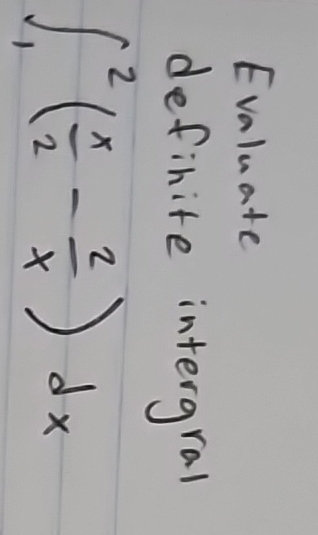 Evaluate
definite intergral
∫₁² (x/2 - 2/x) dx